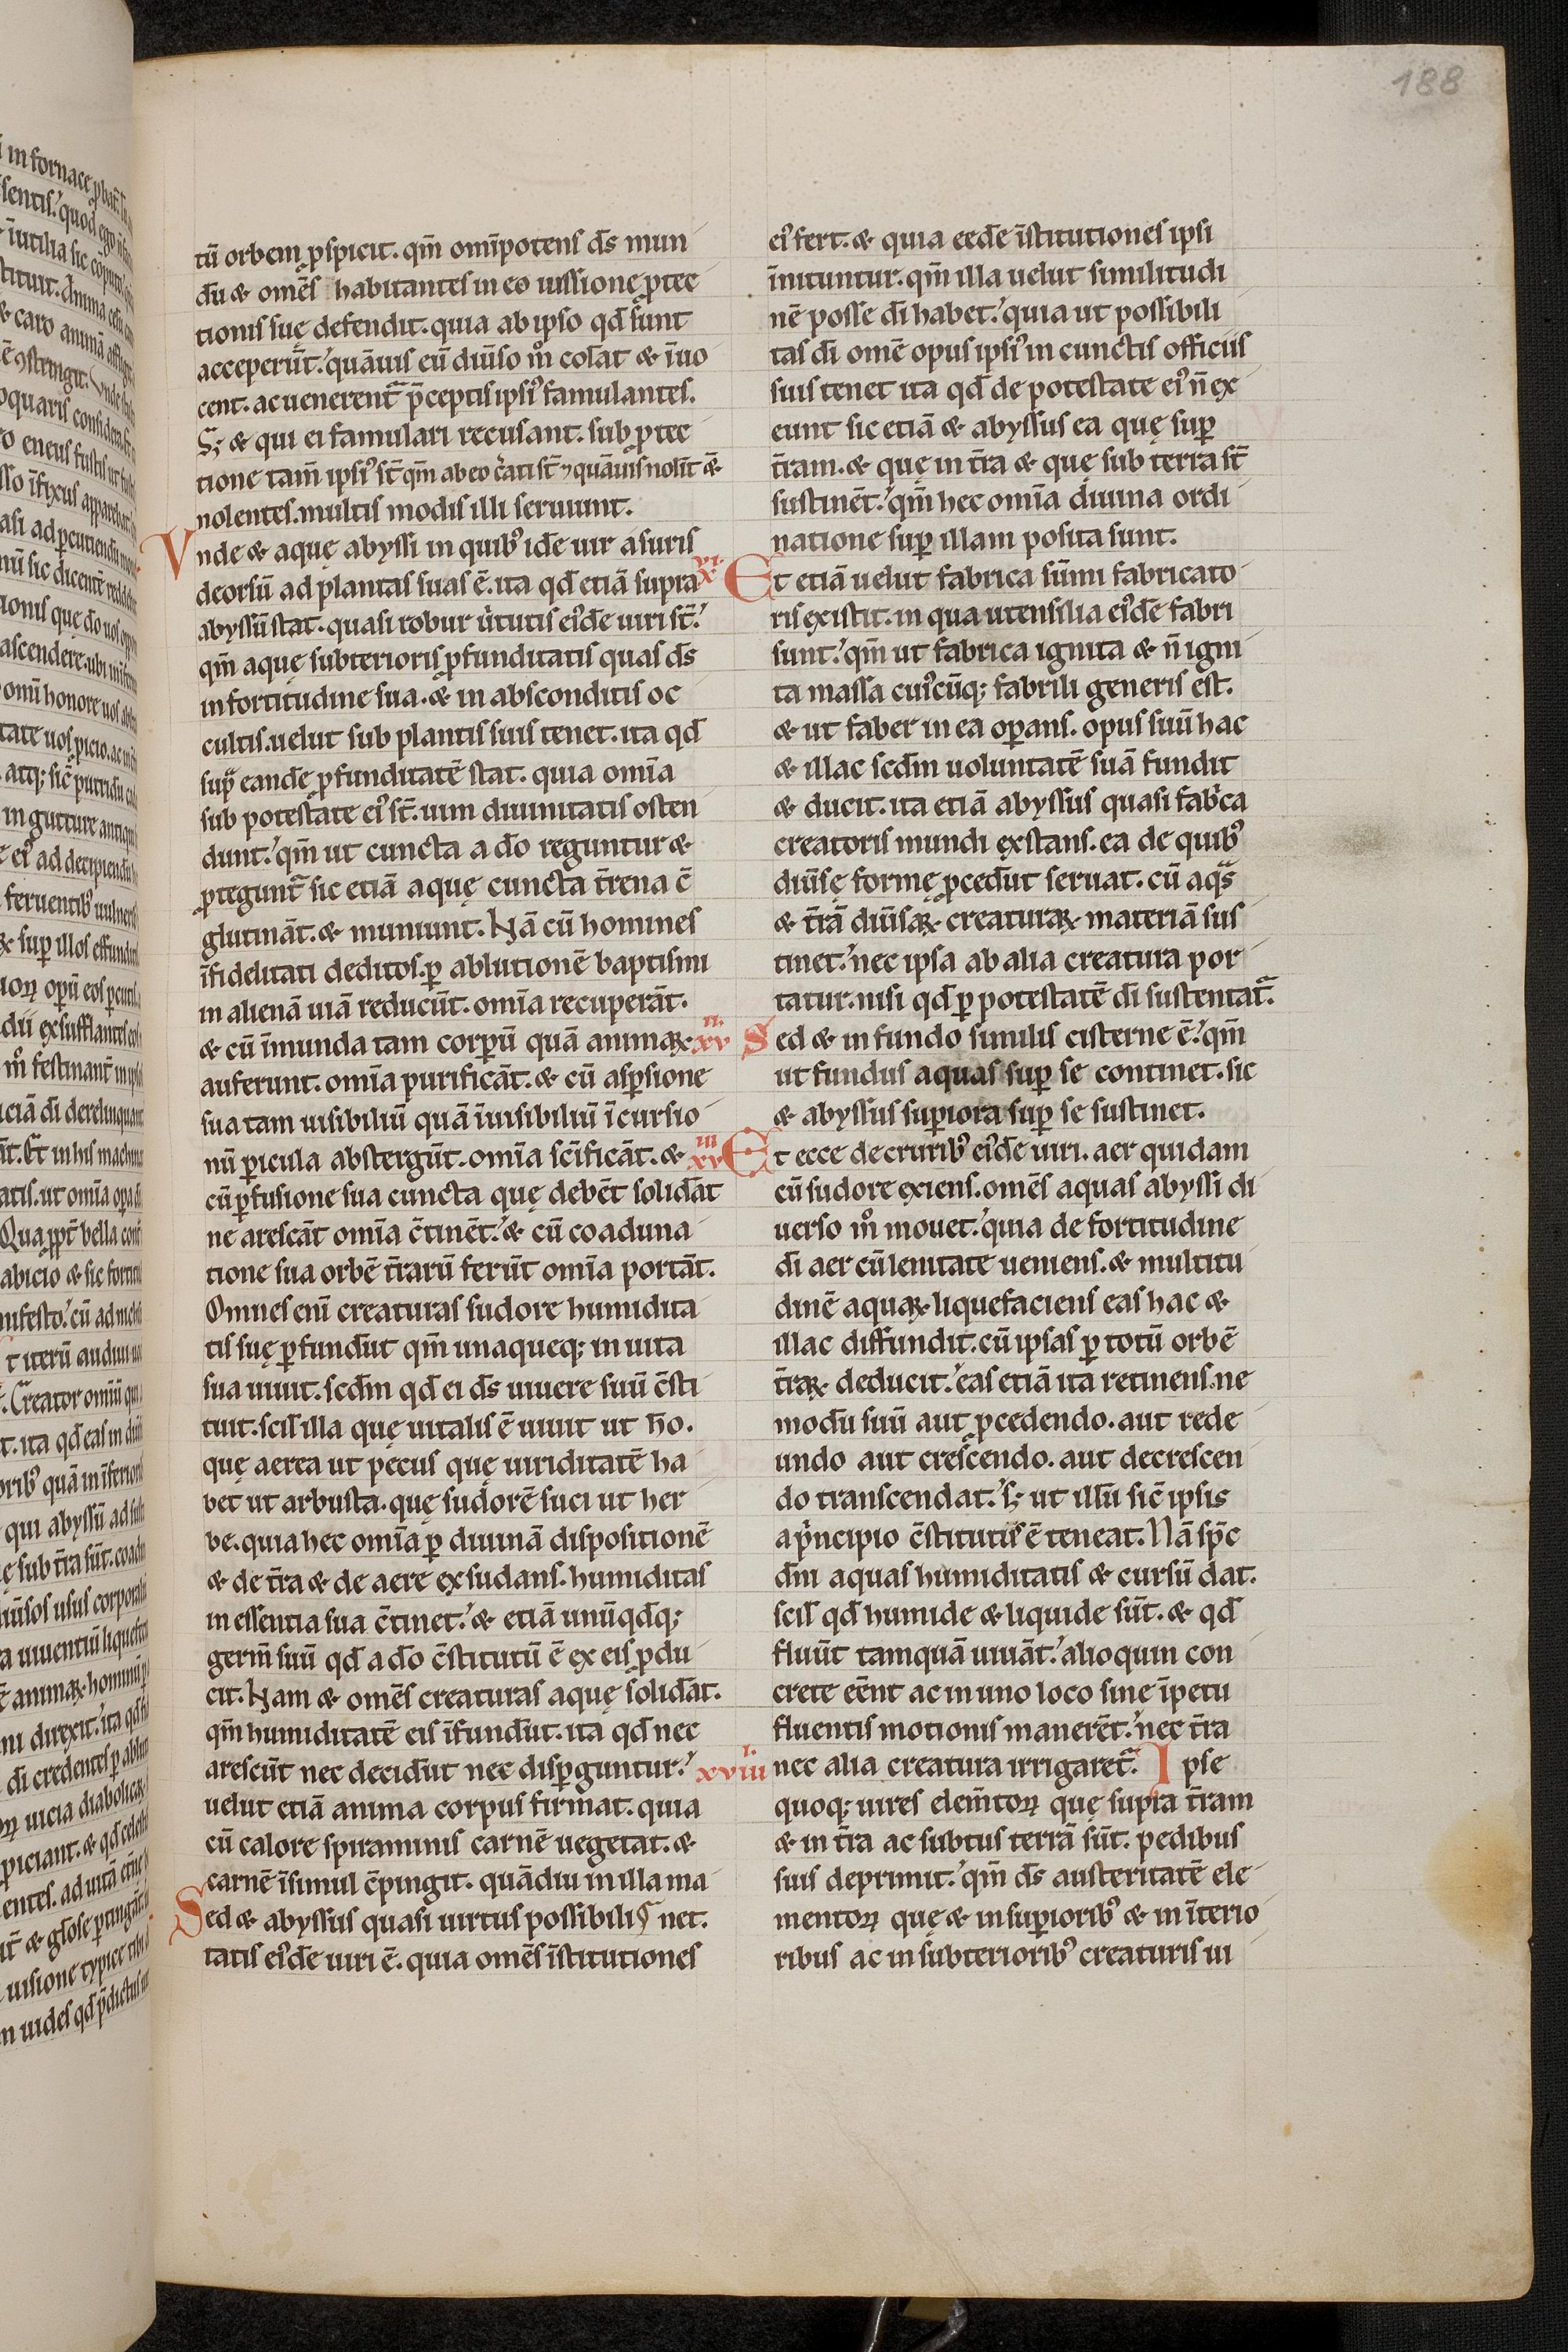 188
tū orbem ꝓspicit. qm̄ omīpotens d̄s mun
dū & omēs habitantes in eo iussione ꝓtec
tionis suę defendit. quia ab ipso qd̄ sunt
acceperūt. quāuis eū diūso m̊ colāt & īuo
cent. ac uenerent᷑ p̄ceptis ipsiꝰ famulantes.
S; & qui ei famulari recusant. sub ꝓtec
tione tam̄ ipsiꝰ st̄ qm̄ ab eo c̄ati st̄ ⁊ quāuis nolīt &
nolentes. multis modis illi seruiunt.
Vnde & aquę abyssi in quibꝰ idē uir a suris
deorsū ad plantas suas ē. ita qd̄ etiā supra
abyssū stat. quasi robur u̇tutis eiꝰdē uiri st̄.
qm̄ aquę subterioris ꝓfunditatis quas d̄s
in fortitudine sua. & in absconditis oc
cultis. uelut sub plantis suis tenet. ita qd̄
sup̄ eandē ꝓfunditatē stat. quia omīa
sub potestate eiꝰ st̄. uim diuinitatis osten
dunt. qm̄ ut cuncta a dō reguntur &
ꝓtegunt᷑ sic etiā aquę cuncta t̄rena c̄
glutināt. & muniunt. Nā cū homines
īfidelitati deditos. ꝑ ablutionē baptismi
in alienā uiā reducūt. omīa recuperāt.
& cū īmunda tam corpꝝ quā animaꝝ
auferunt. omīa purificāt. & cū aspsione
sua tam uisibiliū quā īuisibiliū īcursio
nū ꝑicula abstergūt. omīa sc̄ificāt. &
cū ꝑfusione sua cuncta quę debēt solidāt
ne arescāt omīa c̄tinēt. & cū coaduna
tione sua orbē t̄rarū ferūt omīa portāt.
Omnes enī creaturas sudore humidita
tis suę ꝑfundūt qm̄ unaqueq; in uita
sua uiuit. scd̄m qd̄ ei d̄s uiuere suū c̄sti
tuit. scil̄ illa quę uitalis ē uiuit ut ho.
quę aerea ut pecus quę uiriditatē ha
bet ut arbusta. quę sudorē suci ut her
be. quia hec omīa ꝑ diuinā dispositionē
& de t̄ra & de aere exsudans. humiditas
in essentia sua c̄tinet. & etiā unūqdq;
germ̄ suū qd̄ a dō c̄stitutū ē ex eis ꝓdu
cit. Nam & omēs creaturas aquę solidāt.
qm̄ humiditatē eis īfundūt. ita qd̄ nec
arescūt nec decidūt nec dispguntur.
uelut etiā anima corpus firmat. quia
cū calore spiraminis carnē uegetat. &
carnē īsimul c̄pingit. quādiu in illa ma
Sed & abyssus quasi uirtus possibili¶ net.
tatis eiꝰdē uiri ē. quia omēs īstitutiones
eiꝰ fert. & quia eedē īstitutiones ipsi
īnituntur. qm̄ illa uelut similitudi
nē posse dī habet. quia ut possibili
tas dī omē opus ipsiꝰ in cunctis officiis
suis tenet ita qd̄ de potestate eiꝰ n̄ ex
eunt sic etiā & abyssus ea quę suꝑ
t̄ram. & quę in t̄ra & quę sub terra st̄
sustinēt. qm̄ hec omīa diuina ordi
natione suꝑ illam posita sunt.
xvi. Et etiā uelut fabrica sūmi fabricato
ris existit. in qua utensilia eiꝰdē fabri
sunt. qm̄ ut fabrica ignita & n̄ igni
ta massa cuiꝰcūq; fabrili generis est.
& ut faber in ea oꝑans. opus suū hac
& illac scd̄m uoluntatē suā fundit
& ducit. ita etiā abyssus quasi fab̄ca
creatoris mundi exstans. ea de quibꝰ
diūsę formę ꝓcedūt seruat. cū aqͣs
& t̄rā diūsaꝝ creaturaꝝ materiā sus
tinet. nec ipsa ab alia creatura por
tatur. nisi qd̄ ꝑ potestatē dī sustentat᷑.
xvii. Sed & in fundo similis cisterne ē. qm̄
ut fundus aquas suꝑ se continet. sic
& abyssus supiora suꝑ se sustinet.
xviii Et ecce de cruribꝰ eiꝰdē uiri. aer quidam
cū sudore exiens. omēs aquas abyssi di
uerso m̊ mouet. quia de fortitudine
dī aer cū lenitate ueniens. & multitu
dinē aquaꝝ liquefaciens eas hac &
illac diffundit. cū ipsas ꝑ totū orbē
t̄raꝝ deducit. eas etiā ita retinens. ne
modū suū aut ꝓcedendo. aut rede
undo aut crescendo. aut decrescen
do transcendat. s; ut illū sic̄ ipsis
a pͥncipio c̄stitutis ē teneat. Nā sp̄c
dn̄i aquas humiditatis & cursū dat.
scil̄ qd̄ humide & liquide sūt. & qd̄
fluūt tamquā uiuāt. alioquin con
crete eēnt ac in uno loco sine īpetu
fluentis motionis manerēt. nec t̄ra
xviiii nec alia creatura irrigaret᷑. Ipse
quoq; uires elem̄toꝝ quę supra t̄ram
& in t̄ra ac subtus terrā sūt. pedibus
suis deprimit. qm̄ d̄s austeritatē ele
mentoꝝ quę & in supioribꝰ & in īterio
ribus ac in subterioribꝰ creaturis ui